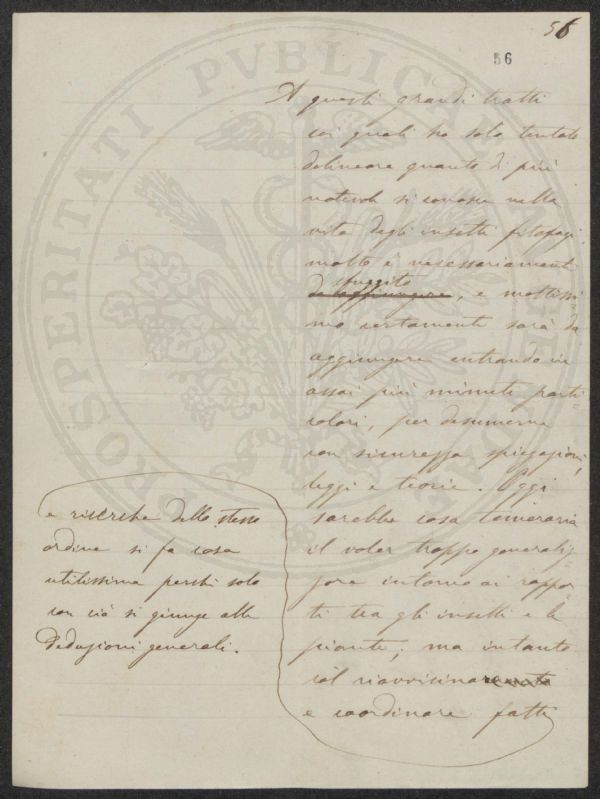 56
56
A questi grandi tratti
coi quali ho solo tentato
delineare quanto di più
notevole si conosce nella
vita degli insetti fitofagi
molto è necessariamente
sfuggito
da raggiungere, e moltissi
mo certamente sarà da
aggiungere entrando in
assai più minuti parti
colari, per desumerne
con sicurezza spiegazioni,
leggi e teorie. Oggi
sarebbe cosa temeraria
il voler troppo generaliz
zare intorno ai rappor
ti tra gli insetti e le
piante; ma intanto
col riavvicinare
e coordinare fatti
e ricerche dello stesso
ordine si fa cosa
utilissima perchè solo
con ciò si giunge alle
Deduzioni generali.
PROSPERITATI PVBLICAE AVGENDAE